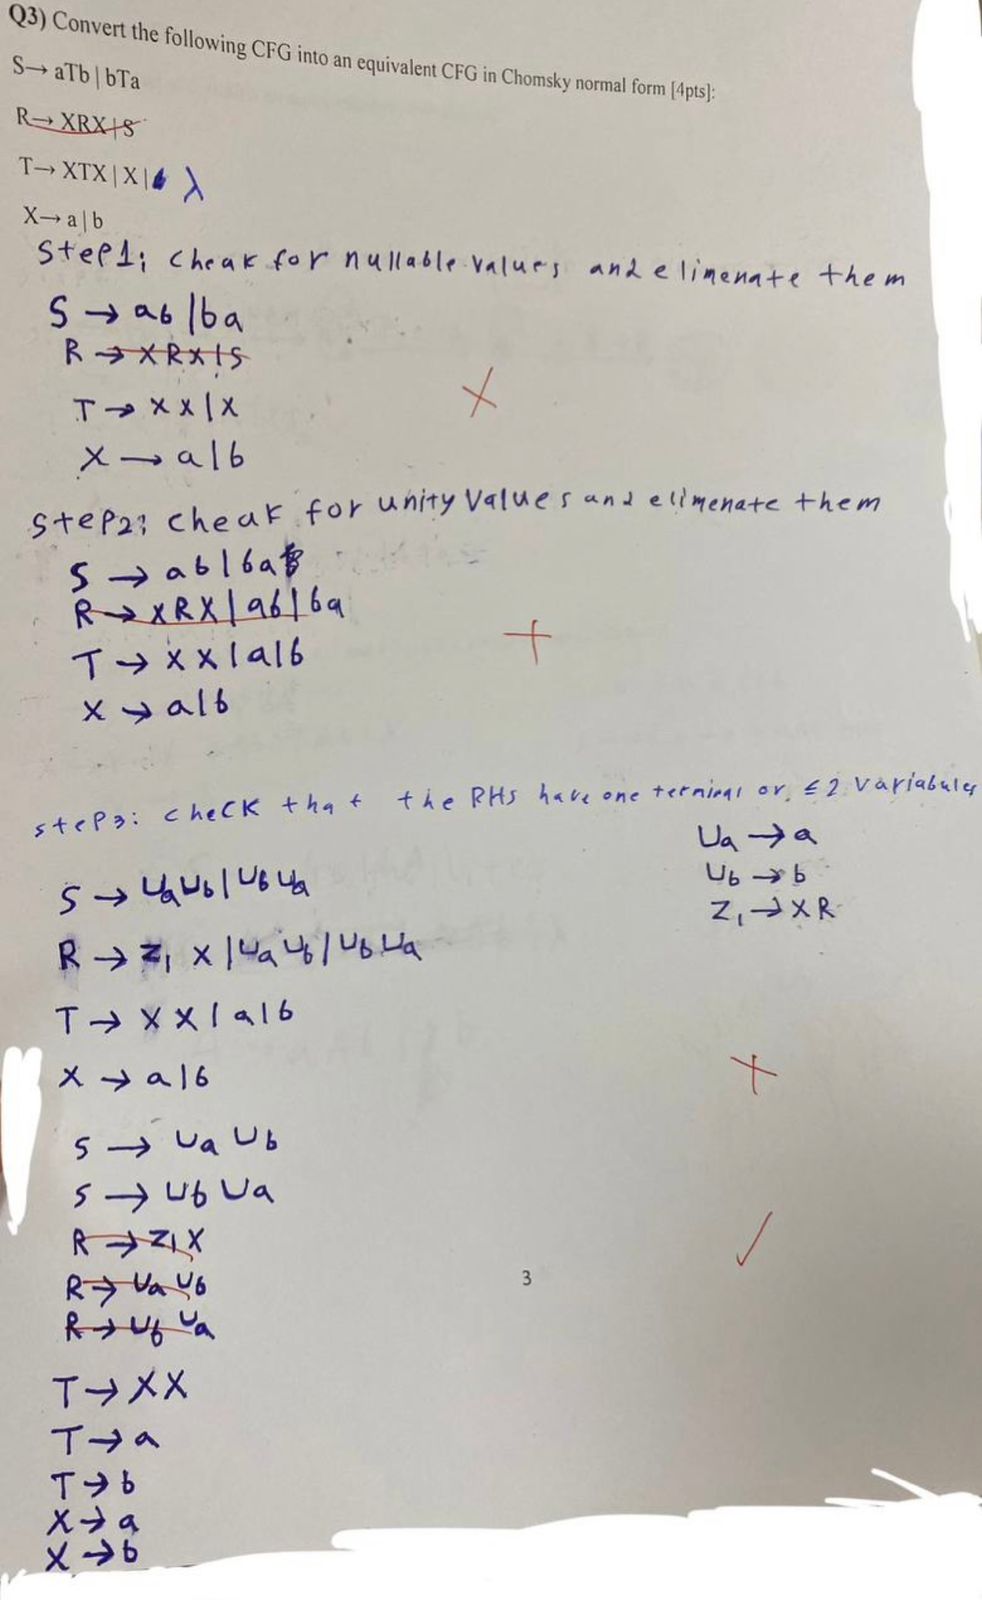 Q3) Convert the following CFG into an equivalent CFG in Chomsky normal form [4pts]:
S→ aTb | bTa
R→ XRX | S
T→ XTX | X | λ
X→ a | b
Step1: cheak for nullable values and elimenate them
S → ab | ba
R → XRX | S
T → XX | X
X → a | b
Step2: cheak for unity values and elimenate them
S → ab | ba
R → XRX | ab | ba
T → XX | a | b
X → a | b
step3: check that the RHS have one terminal or ≤ 2 variabules
Ua → a
Ub → b
Z1 → XR
S → UaUb | UbUa
R → Z1 X | UaUb | UbUa
T → XX | a | b
X → a | b
S → Ua Ub
S → Ub Ua
R → Z1X
R → Ua Ub
R → Ub Ua
3
T → XX
T → a
T → b
X → a
X → b